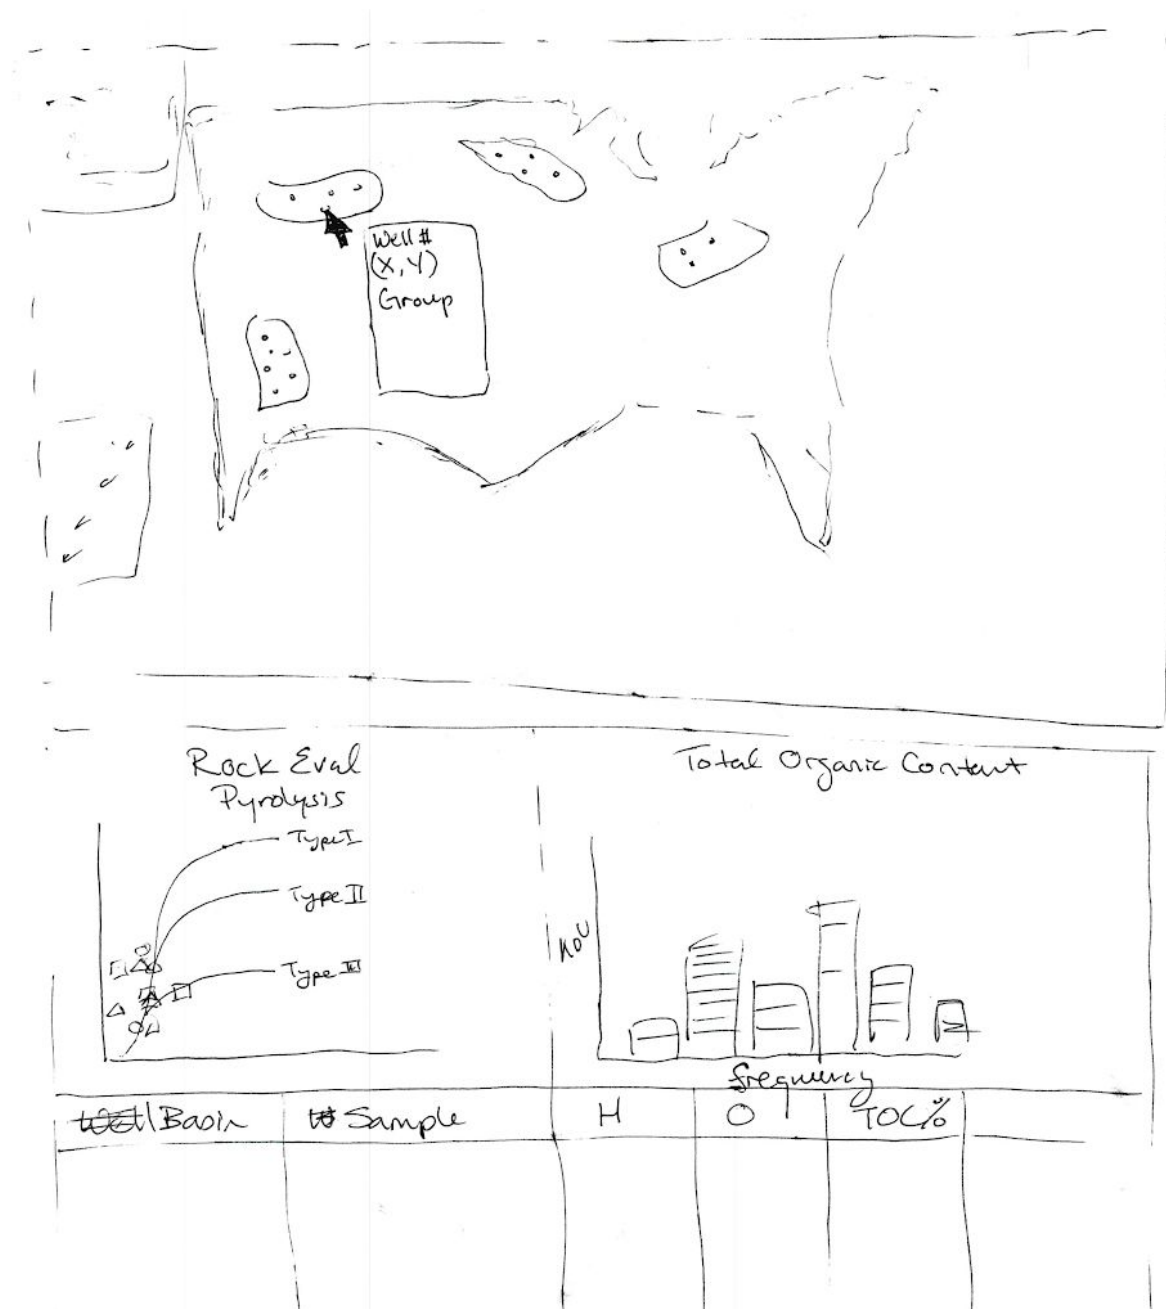 Well #
(X, Y)
Group
Rock Eval
Pyrolysis
Type I
Type II
Type III
Total Organic Content
frequency
Basin
Sample
H
O
TOC%